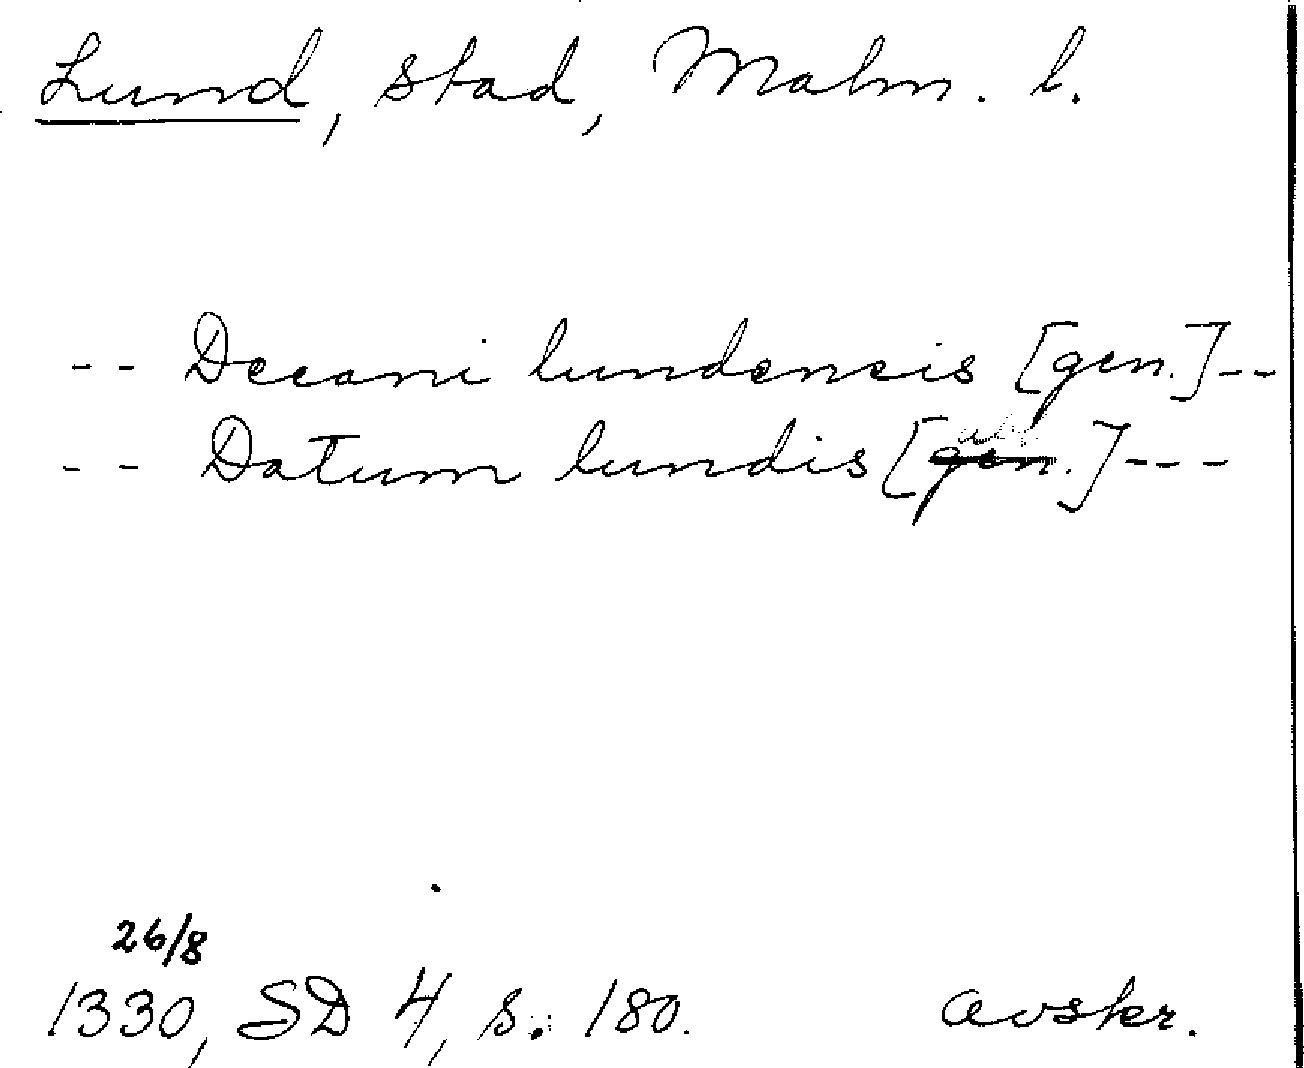 Lund, stad, Malm. l.
-- Decani lundensis [gen.]--
-- Datum lundis [gen.]---
abl.
26/8
1330, SD 4, s. 180. avskr.